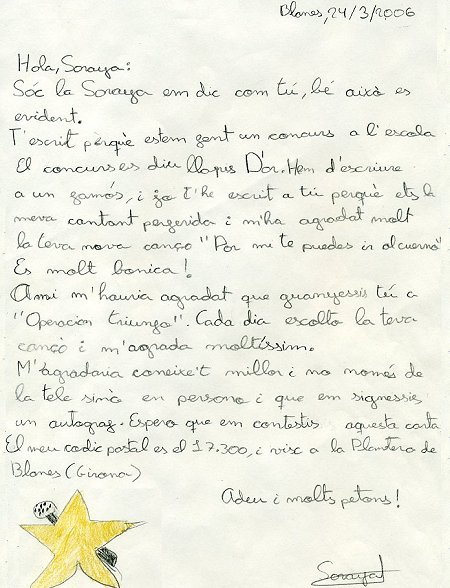 Blanes, 24/3/2006
Hola, Soraya:
Sóc la Soraya em dic com tú, bé això es
evident.
T'escrit pèrquè estem fent un concurs a l'escola
El concurs es diu llapis D'or. Hem d'escriure
a un famós, i jo t'he escrit a tú perquè ets la
meva cantant preferida i m'ha agradat molt
la teva nova canço "Por mi te puedes ir al cuerno"
Es molt bonica!
Ami m'hauria agradat que guanyessis tú a
"Operacion triunfo". Cada dia escolto la teva
cançò i m'agrada moltíssim.
M'agradaria coneixe't millor i no només de
la tele sinò en persona i que em signessis
un autograf. Espero que em contestis aquesta carta
El meu codic postal es el 17.300, i visc a la Plantera de
Blanes (Girona)
Adeu i molts petons!
Soraya